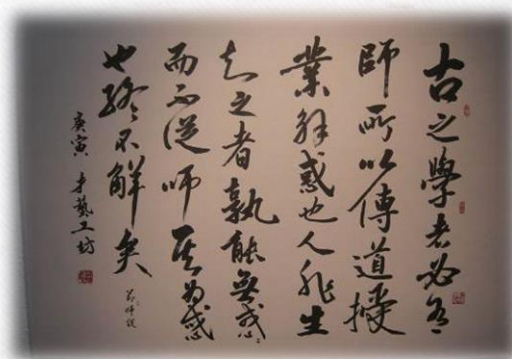 古之學者必有
師所以傳道授
業解惑也人非生
知之者孰能無惑〻
而不從師其為惑
也終不解矣
節師說
庚寅 才藝工坊